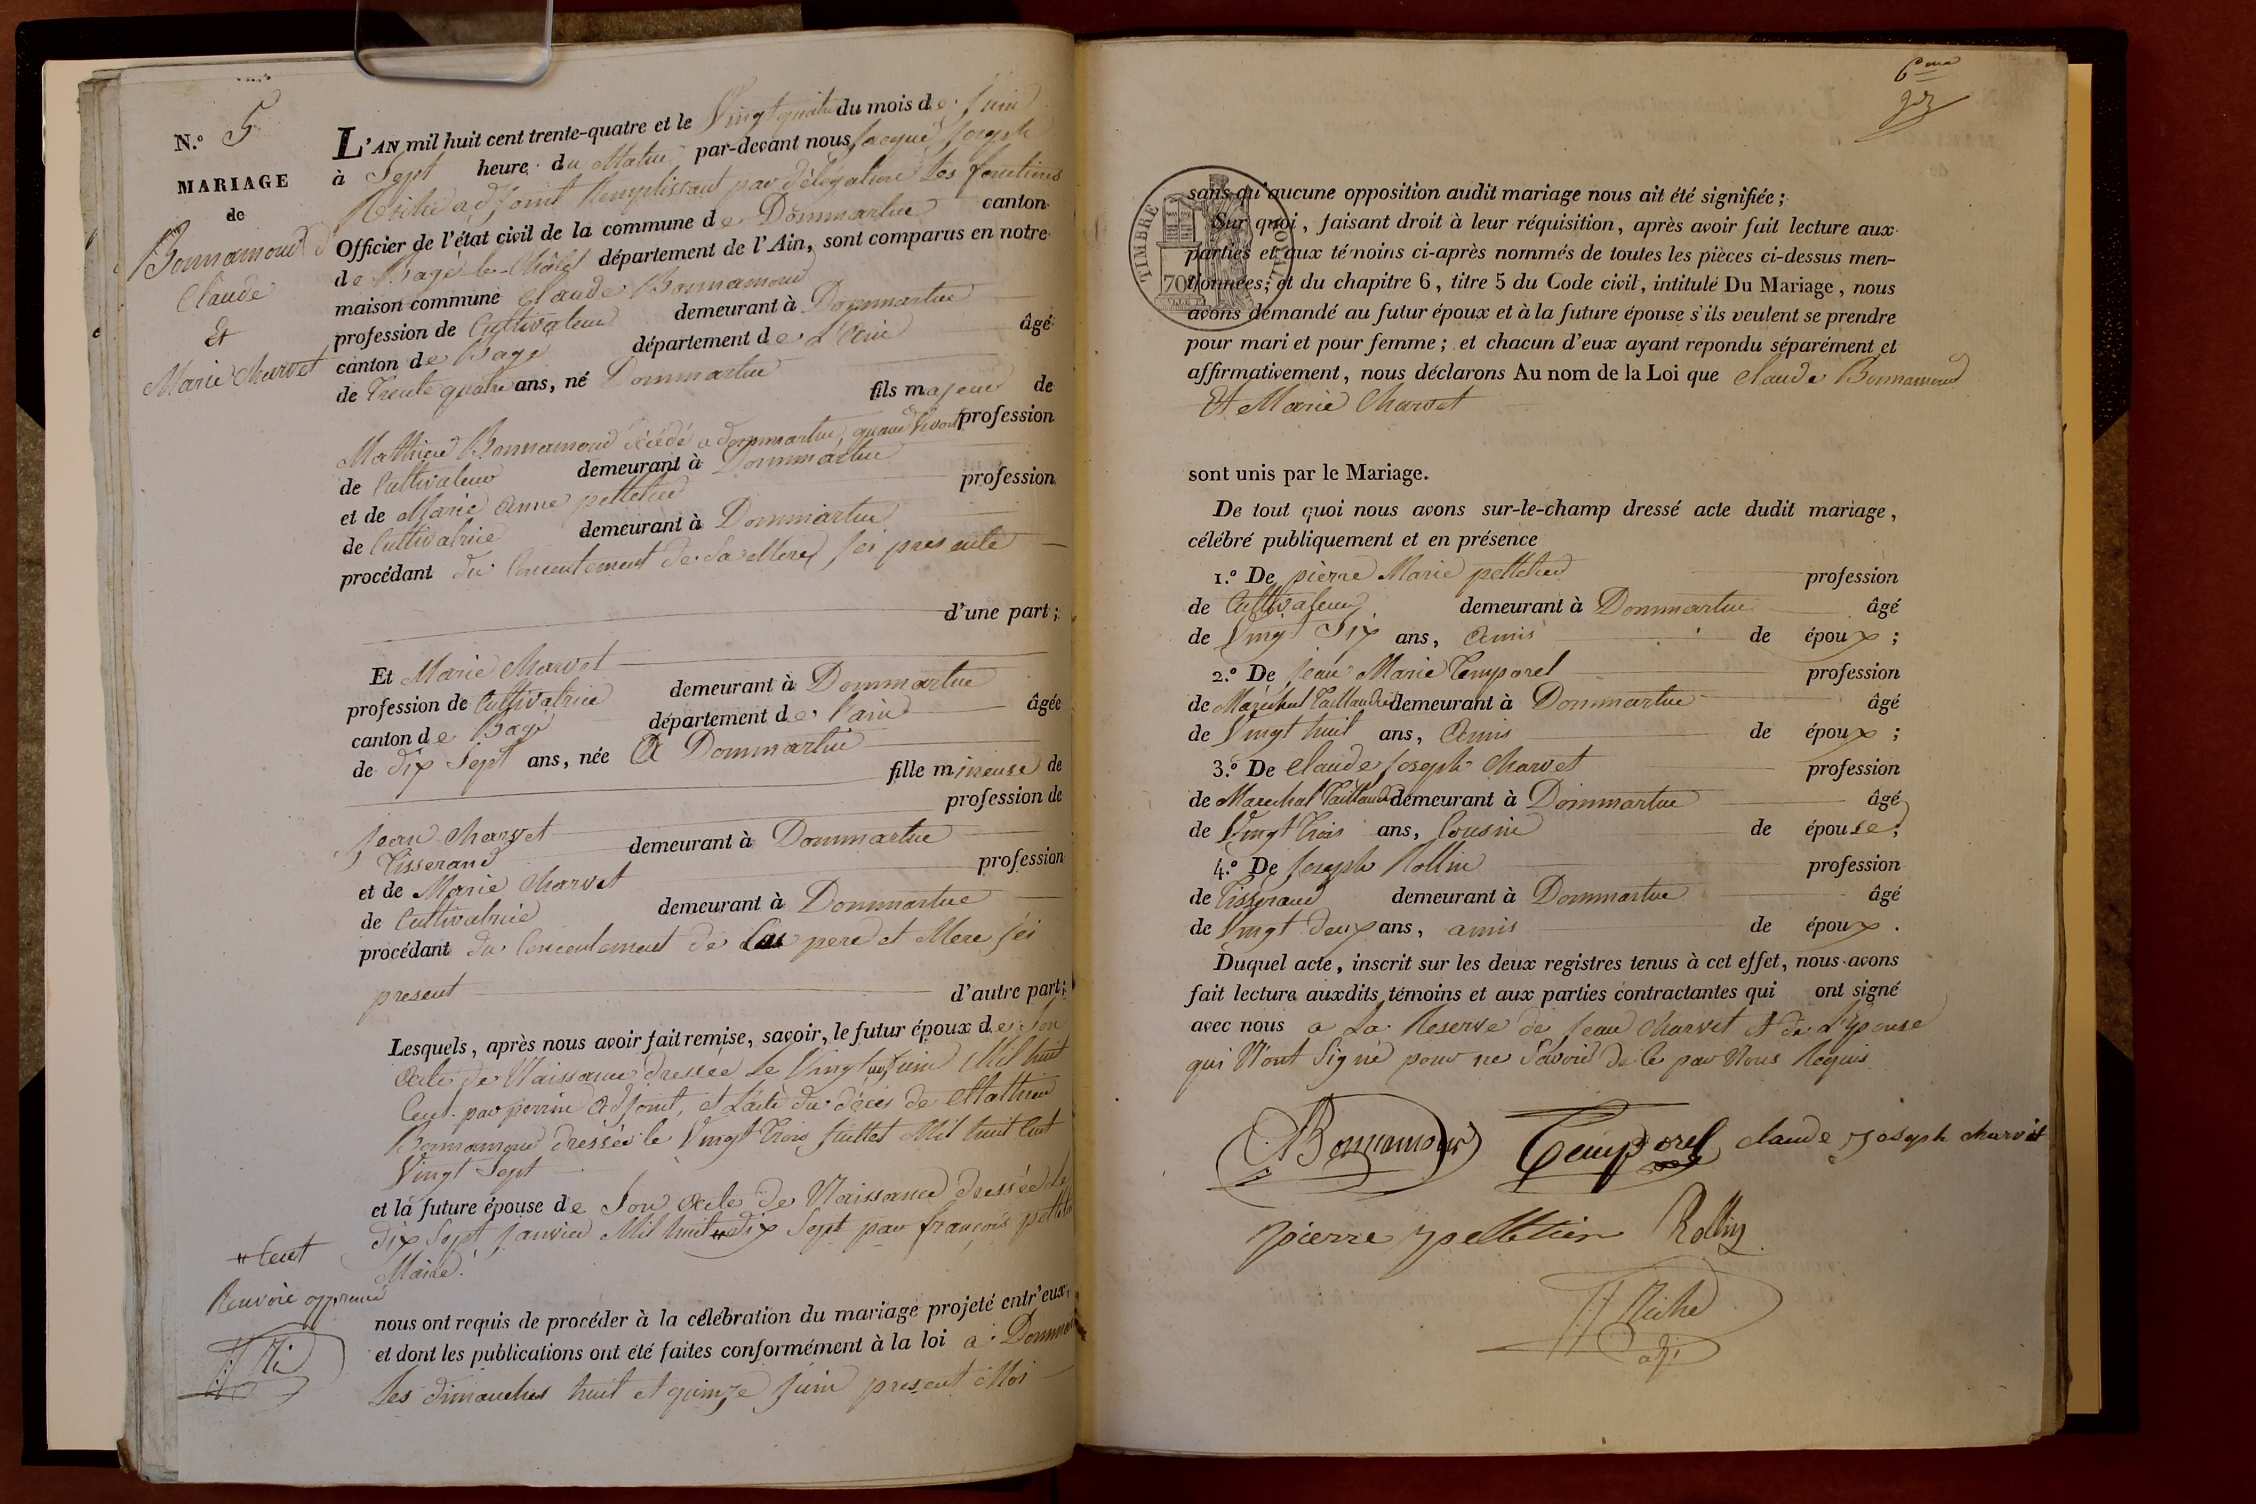 N.º 5
MARIAGE
de
Bonnamour
Claude
Et
Marie Charvet
L'AN mil huit cent trente-quatre et le Vingt quatre du mois de Juin
à Sept heure du Matin par-devant nous Jacques Joseph
adjoint Remplissant par délégation les fonctions
Officier de l'état civil de la commune de Dommartin canton
de Bagé-le-Châtel département de l'Ain, sont comparus en notre
maison commune Claude Bonnamour
profession de Cultivateur demeurant à Dommartin
canton de Bagé département de L'Ain âgé
de Trente quatre ans, né Dommartin
fils majeur de
Mathieu Bonnamour décédé a dommartin, quand vivait profession
de Cultivateur demeurant à Dommartin
et de Marie Anne pelletier profession
de Cultivatrice demeurant à Dommartin
procédant du Concentement de Sa Mere, Jci presente
d'une part;
Et Marie Charvet
profession de Cultivatrice demeurant à Dommartin
canton de Bagé département de l'ain âgée
de dix Sept ans, née A Dommartin
fille mineure de
Jean Charvet profession de
Tisserand demeurant à Dommartin
et de Marie Charvet profession
de Cultivatrice demeurant à Dommartin
procédant du Concentement de Ses pere et Mere Jci
present d'autre part;
Lesquels, après nous avoir fait remise, savoir, le futur époux de Son
Acte de Naissance dressée le Vingt un Juin Mil huit
Cent par perrin Adjoint, et L'acte du décés de Mathieu
Bonnamour dressée le Vingt Trois Juillet Mil huit Cent
Vingt Sept
et la future épouse de Son Acte de Naissance dressée le
dix Sept Janvier Mil huit " dix Sept par françois pelletier
Maire.
" Cent
Renvoie approuvé
nous ont requis de procéder à la célébration du mariage projeté entr'eux,
et dont les publications ont été faites conformément à la loi a Dommartin
Les dimanches huit et quinze Juin present Mois
6eme
TIMBRE ROYAL
70
sans qu'aucune opposition audit mariage nous ait été signifiée;
Sur quoi, faisant droit à leur réquisition, après avoir fait lecture aux
parties et aux témoins ci-après nommés de toutes les pièces ci-dessus men-
tionnées; et du chapitre 6, titre 5 du Code civil, intitulé Du Mariage, nous
avons demandé au futur époux et à la future épouse s'ils veulent se prendre
pour mari et pour femme; et chacun d'eux ayant repondu séparément et
affirmativement, nous déclarons Au nom de la Loi que Claude Bonnamour
Et Marie Charvet
sont unis par le Mariage.
De tout quoi nous avons sur-le-champ dressé acte dudit mariage,
célébré publiquement et en présence
1.º De pierre Marie pelletier profession
de Cultivateur demeurant à Dommartin âgé
de Vingt Six ans, Amis de époux;
2.º De Jean Marie Temporel profession
de Maréchal Taillandier demeurant à Dommartin âgé
de Vingt huit ans, Amis de époux;
3.º De Claude Joseph Charvet profession
de Marechal Taillandier demeurant à Dommartin âgé
de Vingt Trois ans, Cousin de épouse;
4.º De Joseph Rollin profession
de Tisserand demeurant à Dommartin âgé
de Vingt deux ans, amis de époux.
Duquel acte, inscrit sur les deux registres tenus à cet effet, nous avons
fait lecture auxdits témoins et aux parties contractantes qui ont signé
avec nous a La Reserve de Jean Charvet et de L'Epouse
qui N'ont Signé pour ne Savoir de le par Nous Requis
Bonnamour Temporel claude Joseph charvet
pierre pelletier Rollin
adj